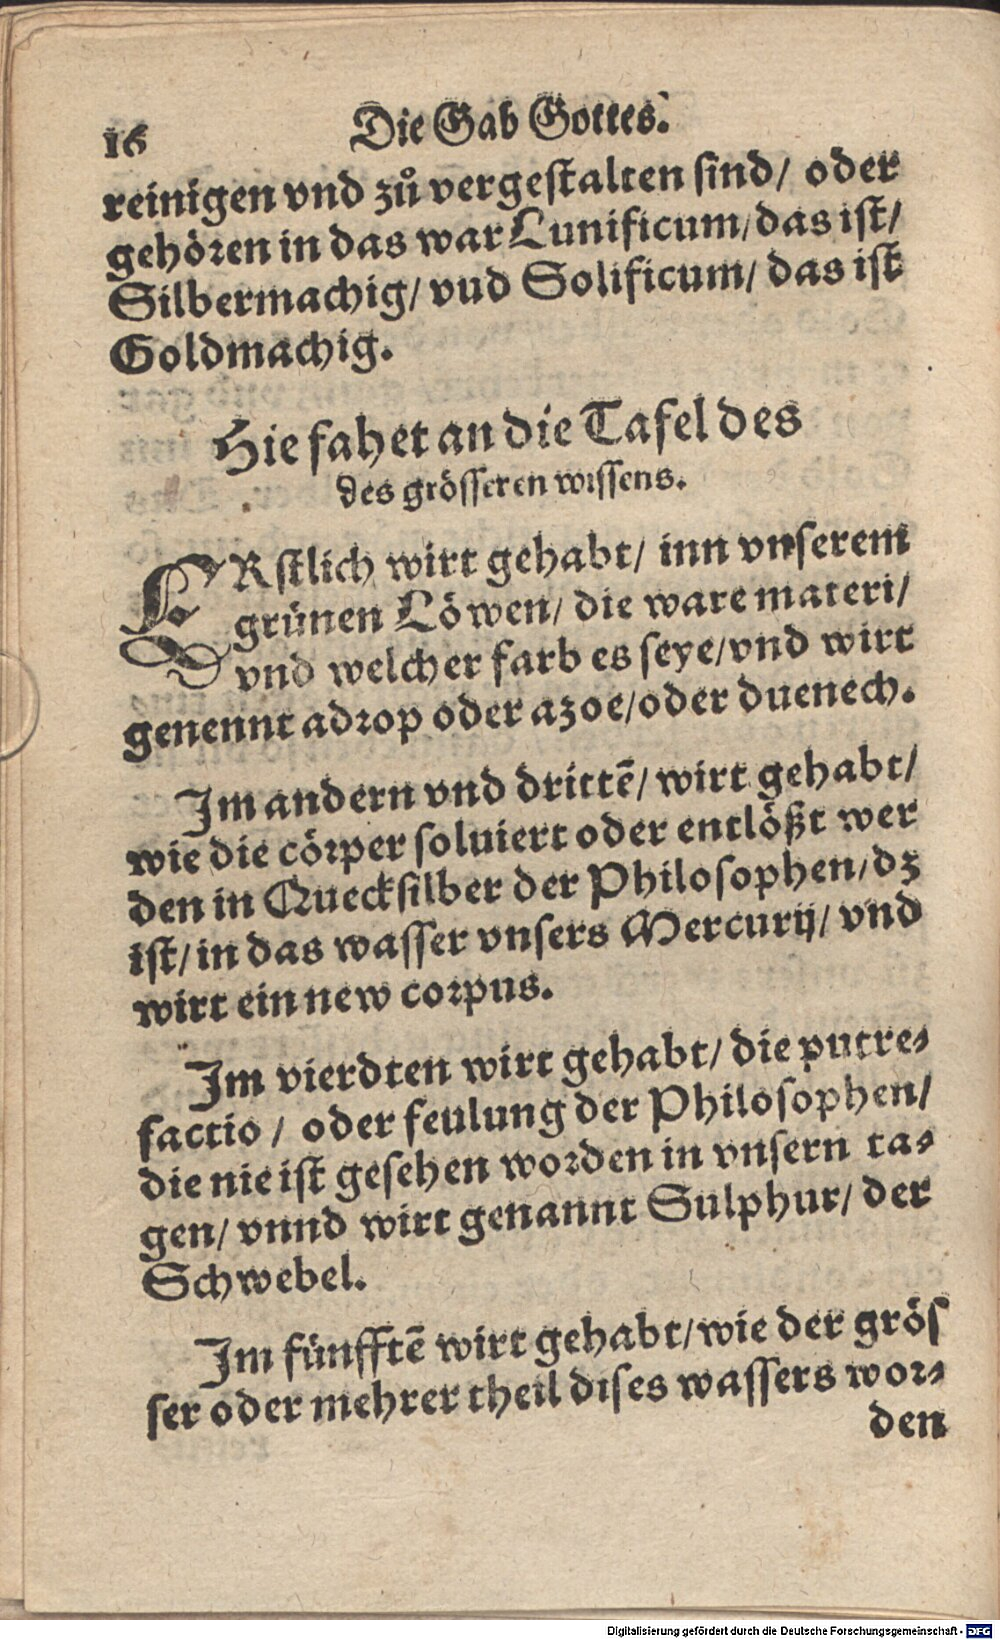 16 Die Gab Gottes.
reinigen vnd zů vergestalten sind/ oder
gehören in das war Lunificum/das ist/
Silbermachig/ vud Solificum/ das ist
Goldmachig.
Hie fahet an die Tafel des
des grösseren wissens.
ERstlich wirt gehabt/ inn vnserem
grünen Löwen/ die ware materi/
vnd welcher farb es seye/vnd wirt
genennt adrop oder azoe/oder duenech.
Im andern vnd drittē/ wirt gehabt/
wie die cörper soluiert oder entlößt wer
den in Quecksilber der Philosophen/dz
ist/in das wasser vnsers Mercurij/ vnd
wirt ein new corpus.
Im vierdten wirt gehabt/ die putre-
factio / oder feulung der Philosophen/
die nie ist gesehen worden in vnsern ta-
gen/ vnnd wirt genannt Sulphur/ der
Schwebel.
Im fünfftē wirt gehabt/wie der grös
ser oder mehrer theil dises wassers wor-
den
Digitalisierung gefördert durch die Deutsche Forschungsgemeinschaft - DFG